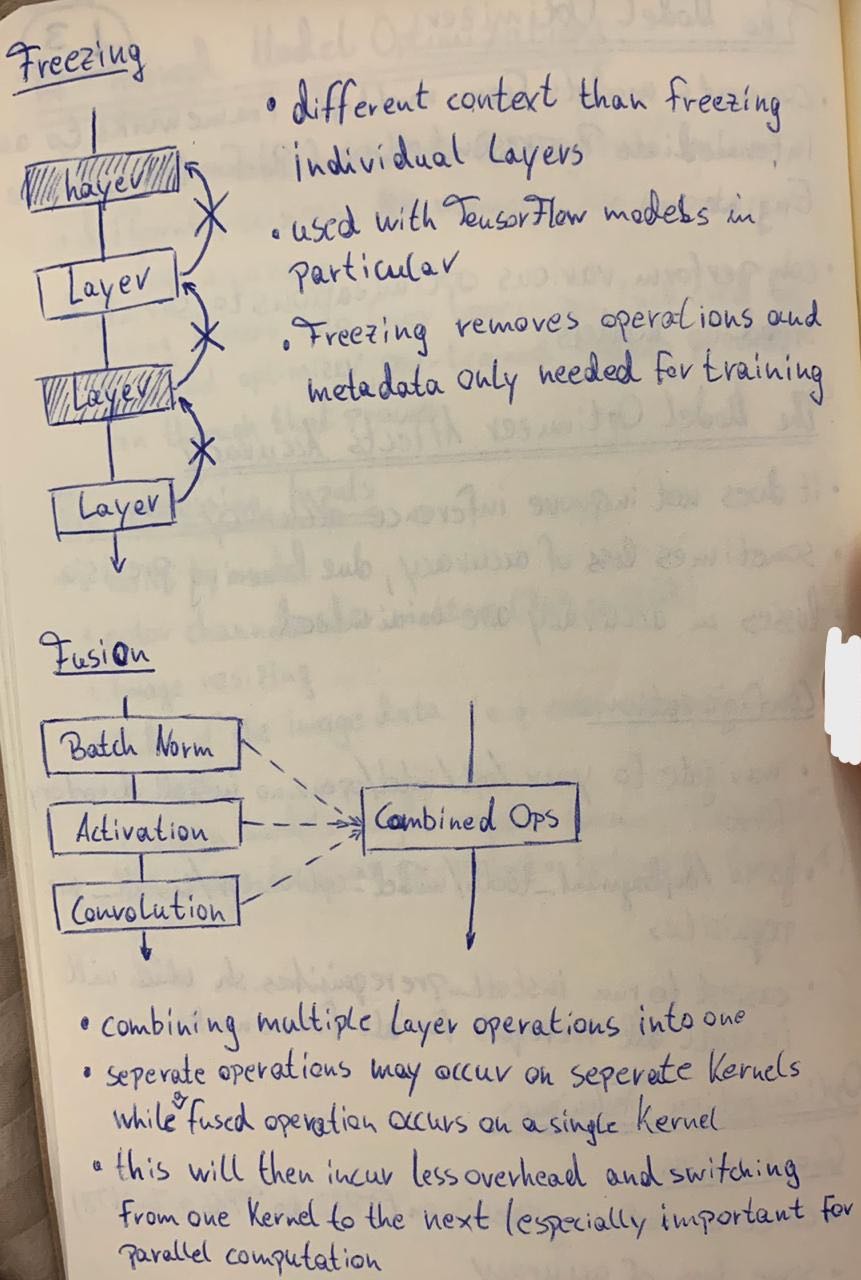 Freezing
Layer
Layer
Layer
Layer
• different context than freezing
individual Layers
• used with TensorFlow models in
particular
• Freezing removes operations and
metadata only needed for training
Fusion
Batch Norm
Activation
Convolution
Combined Ops
• combining multiple Layer operations into one
• seperate operations may occur on seperate Kernels
while a fused operation occurs on a single Kernel
• this will then incur less overhead and switching
from one Kernel to the next (especially important for
parallel computation